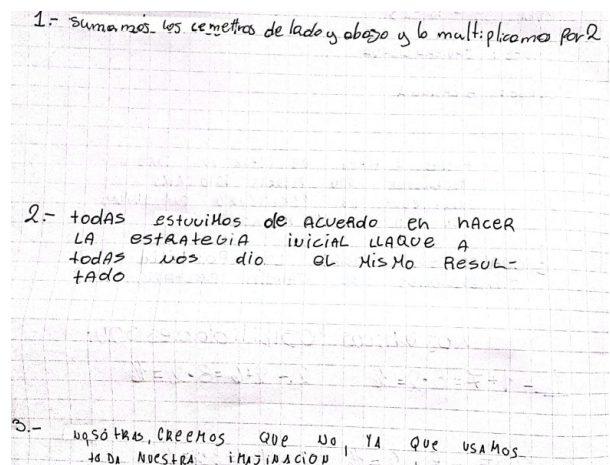 1.- Sumamos los cemettros de lado y abajo y lo multiplicamo por 2
2.- todas estuvimos de acuerdo en hacer
la estrategia inicial llaque a
todas nos dio el mismo resul-
tado
3.- nosotras, creemos que no, ya que usamos
toda nuestra imajinacion